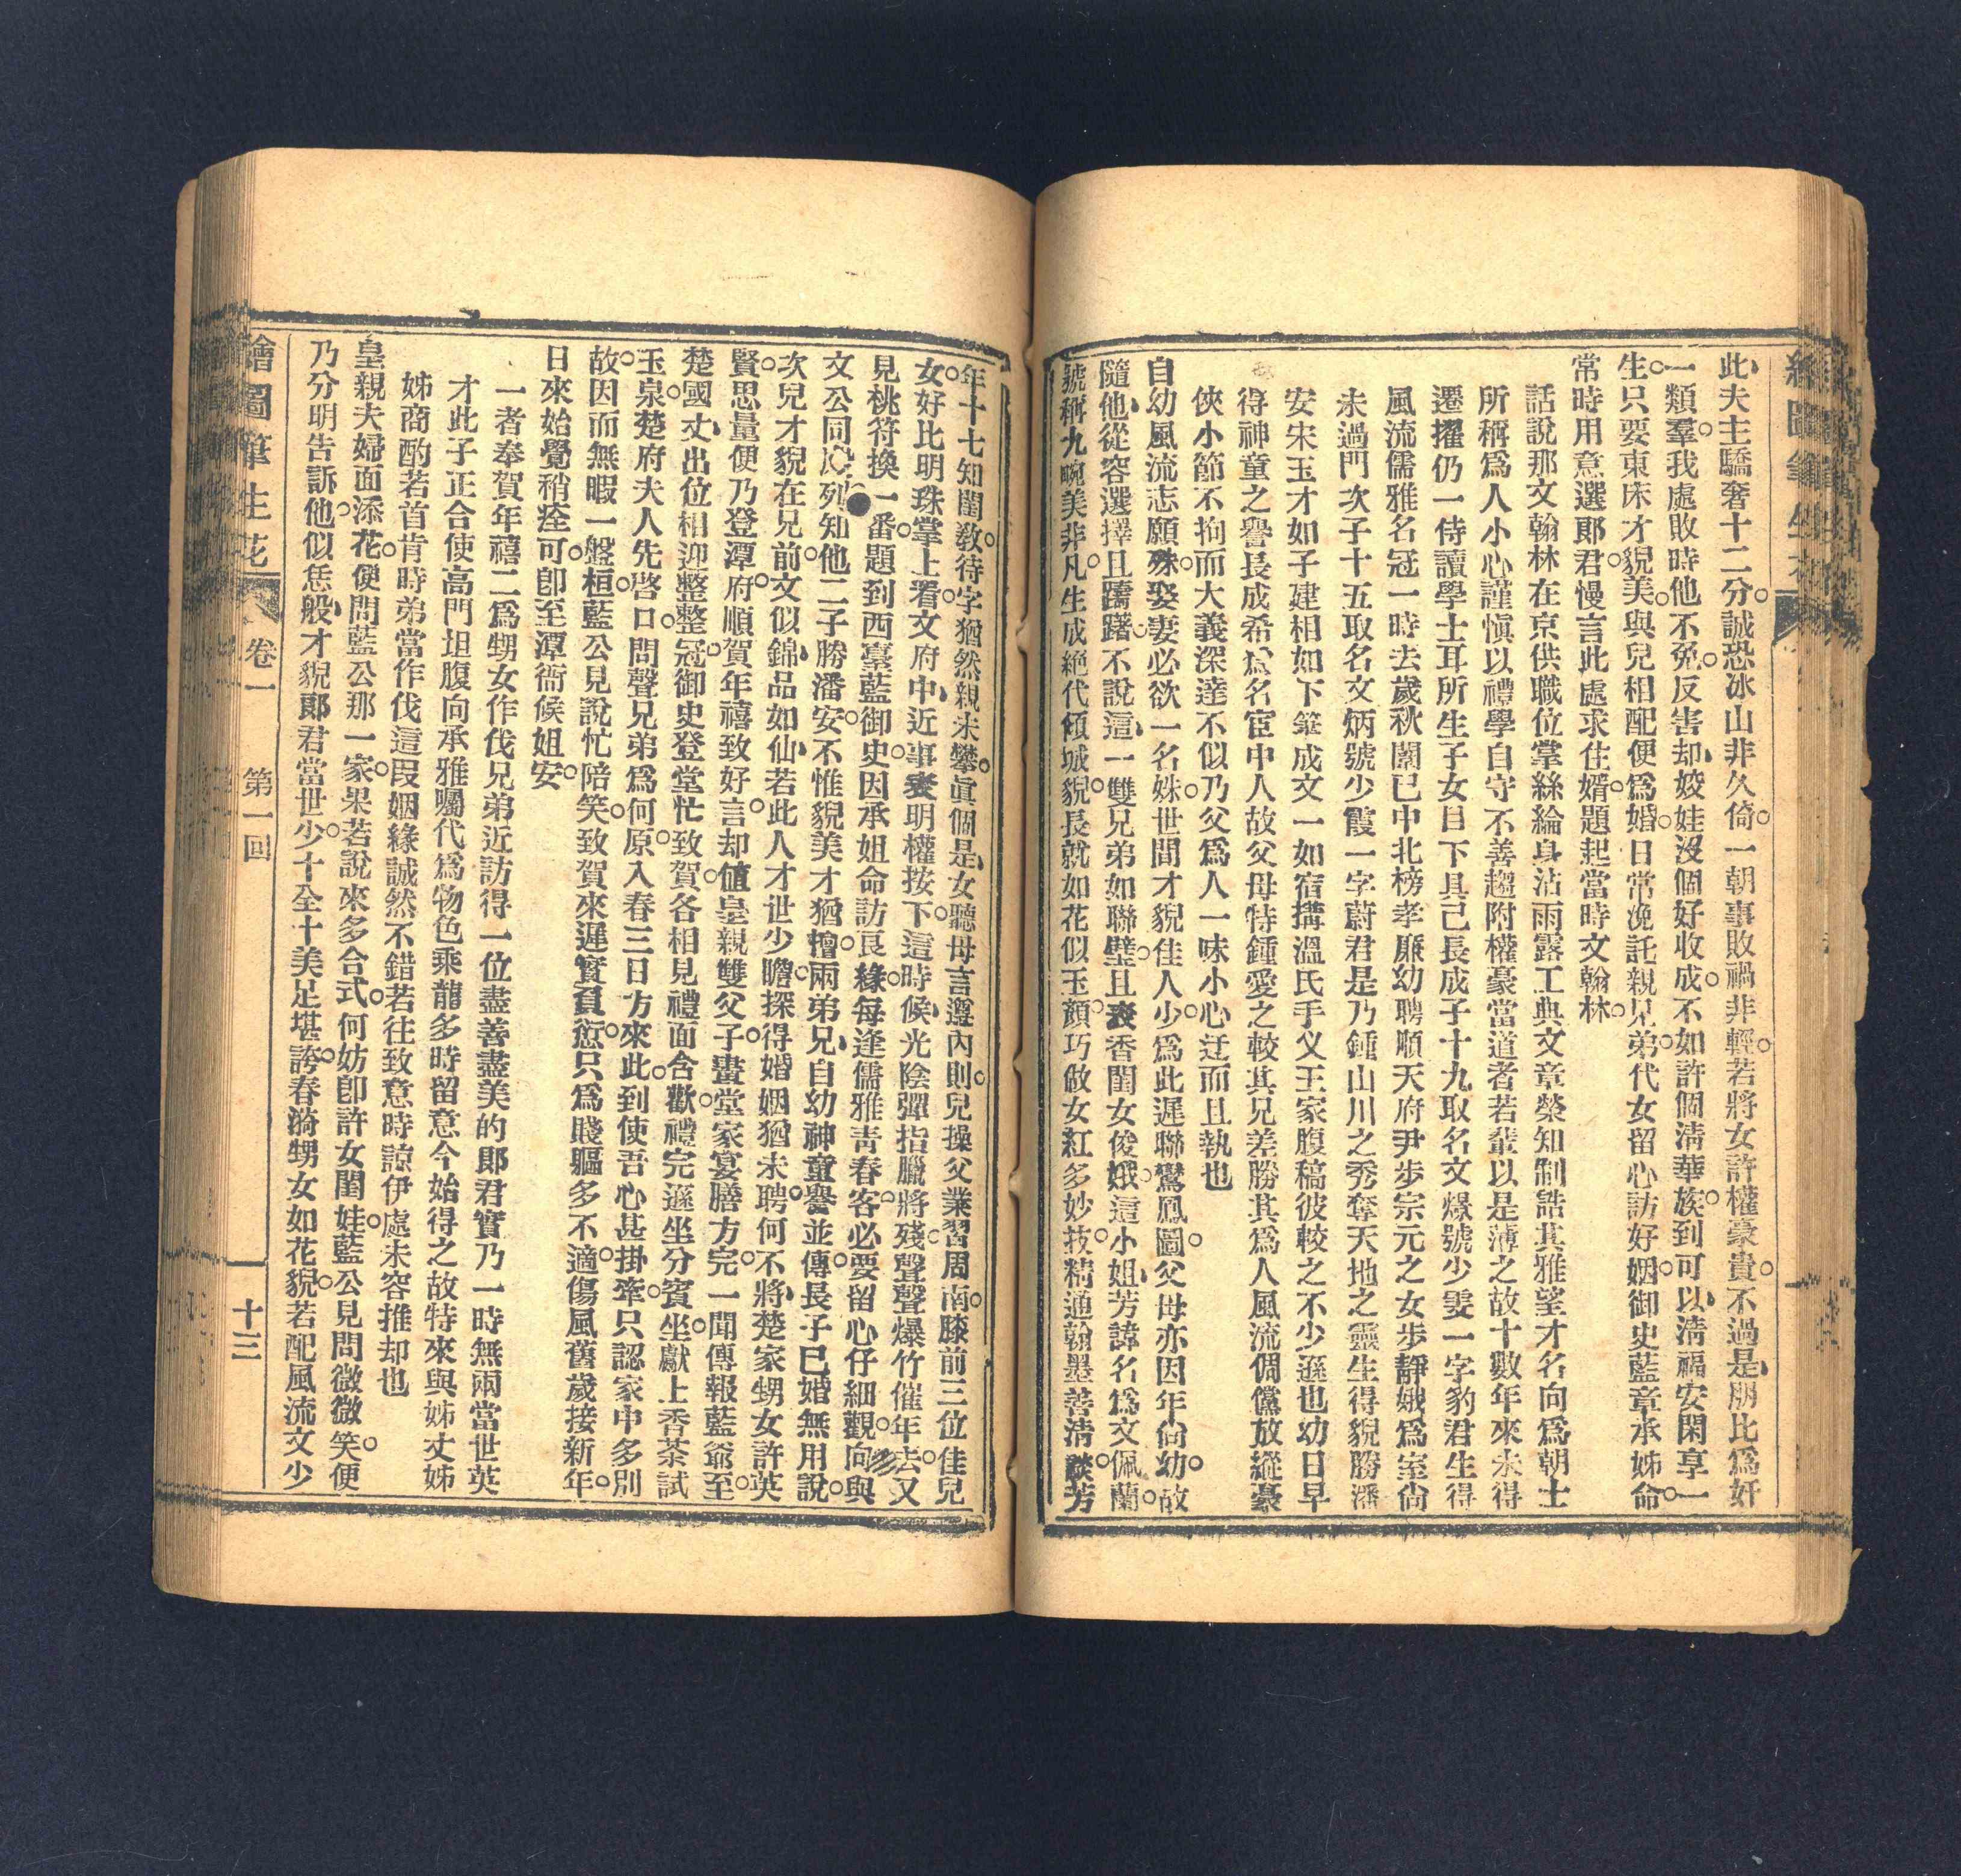 此夫主驕奢十二分誠恐冰山非久倚一朝事敗禍非輕若將女許權豪貴不過是朋比爲奸
一類羣我處敗時他不免反害却姣娃沒個好收成不如許個淸華族到可以淸福安閑享一
生只要東床才貌美與兒相配便爲婚日常浼託親兄弟代女留心訪好姻御史藍章承姊命
常時用意選郞君慢言此處求佳婿題起當時文翰林
話說那文翰林在京供職位掌絲綸身沾雨露工典文章榮知制誥其雅望才名向爲朝士
所稱爲人小心謹愼以禮學自守不善趨附權豪當道者若輩以是薄之故十數年來未得
遷擢仍一侍讀學士耳所生子女目下具已長成子十九取名文煥號少雯一字豹君生得
風流儒雅名冠一時去歲秋闈已中北榜孝廉幼聘順天府尹步宗元之女步靜娥爲室尙
未過門次子十五取名文炳號少霞一字蔚君是乃鍾山川之秀奪天地之靈生得貌勝潘
安宋玉才如子建相如下筆成文一如宿搆溫氏手义王家腹稿彼較之不少遜也幼日早
得神童之譽長成希爲名宦中人故父母特鍾愛之較其兄差勝其爲人風流倜儻放縱豪
俠小節不拘而大義深達不似乃父爲人一味小心迂而且執也
自幼風流志願殊娶妻必欲一名姝世間才貌佳人少爲此遲聯鸞鳳圖父母亦因年尙幼故
隨他從容選擇且躊躇不說這一雙兄弟如聯璧且表香閨女俊娥這小姐芳諱名爲文佩蘭
號稱九畹美非凡生成絕代傾城貌長就如花似玉顏巧做女紅多妙技精通翰墨善淸談芳
年十七知閨敎待字猶然親未攀眞個是女聽母言遵內則兒操父業習周南膝前三位佳兒
女好比明珠掌上看文府中近事表明權按下這時候光陰彈指臘將殘聲聲爆竹催年去又
見桃符換一番題到西臺藍御史因承姐命訪良緣每逢儒雅靑春客必要留心仔細觀向與
文公同 列知他二子勝潘安不惟貌美才猶擅兩弟兄自幼神童譽並傳長子已婚無用說
次兒才貌在兄前文似錦品如仙若此人才世少瞻探得婚姻猶未聘何不將楚家甥女許英
賢思量便乃登潭府順賀年禧致好言却値皇親雙父子畫堂家宴膳方完一聞傳報藍爺至
楚國丈出位相迎整整冠御史登堂忙致賀各相見禮面含歡禮完遜坐分賓坐獻上香茶試
玉泉楚府夫人先啓口問聲兄弟爲何原入春三日方來此到使吾心甚掛牽只認家中多別
故因而無暇一盤桓藍公見說忙陪笑致賀來遲實負愆只爲賤軀多不適傷風舊歲接新年
日來始覺稍痊可卽至潭衙候姐安
一者奉賀年禧二爲甥女作伐兄弟近訪得一位盡善盡美的郞君實乃一時無兩當世英
才此子正合使高門坦腹向承雅囑代爲物色乘龍多時留意今始得之故特來與姊丈姊
姊商酌若首肯時弟當作伐這段姻緣誠然不錯若往致意時諒伊處未容推却也
皇親夫婦面添花便問藍公那一家果若說來多合式何妨卽許女閨娃藍公見問微微笑便
乃分明告訴他似恁般才貌郞君當世少十全十美足堪誇春漪甥女如花貌若配風流文少
繪圖筆生花 卷一 第一回 十三